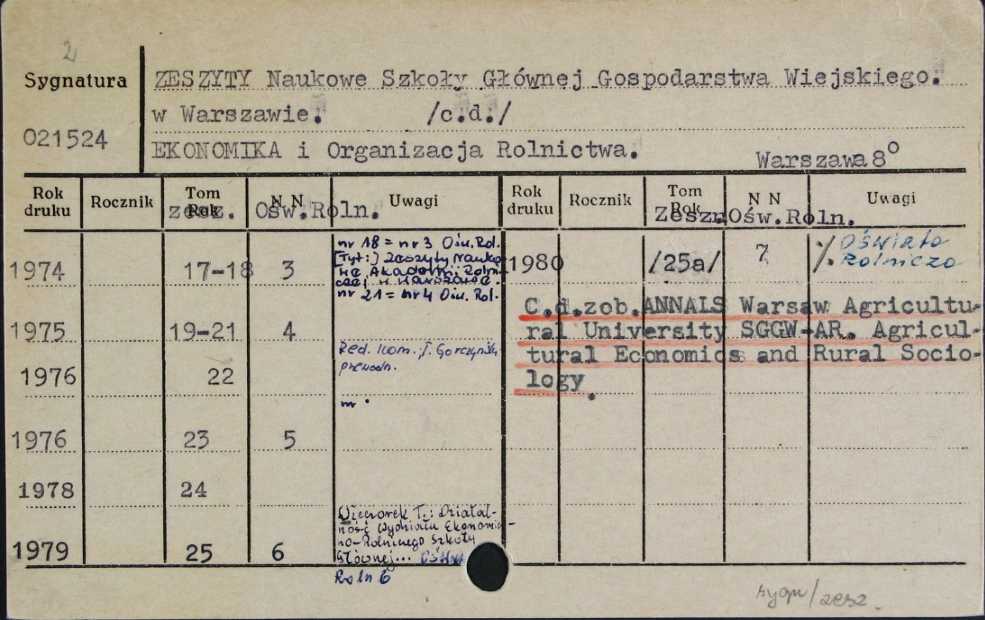 2
Sygnatura
021524
ZESZYTY Naukowe Szkoły Głównej Gospodarstwa Wiejskiego.
w Warszawie. /c.d./
EKONOMIKA i Organizacja Rolnictwa. Warszawa 8°
Rok druku Rocznik Tom Rok N N Uwagi Rok druku Rocznik Tom Rok N N Uwagi
zesz. Ośw.Roln. Zesz. Ośw.Roln.
1974 17-18 3
nr 18 = nr 3 Ośw. Rol.
[Tyt:] Zeszyty Nauko-
we Akademii Rolni-
czej w Warszawie.
nr 21 = nr 4 Ośw. Rol.
1975 19-21 4
Red. kom. J. Gorczyński
przewodn.
1976 22
1976 23 5
1978 24
1979 25 6
Wieczorek T.: Działal-
ność Wydziału Ekonomicz-
no-Rolniczego Szkoły
Głównej...
Roln 6
1980 /25a/ 7 % Oświata
Rolnicza
C.d.zob.ANNALS Warsaw Agricultu-
ral University SGGW-AR. Agricul-
tural Economics and Rural Socio-
logy.
sygn/zesz.